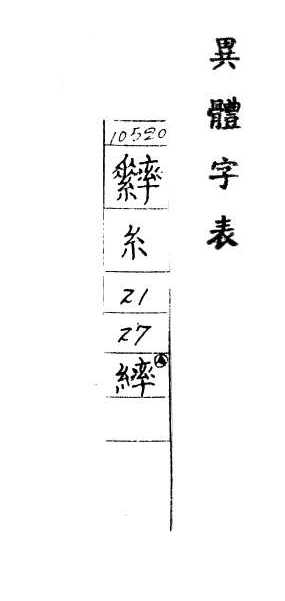 異體字表
10520
糸
21
27
繂